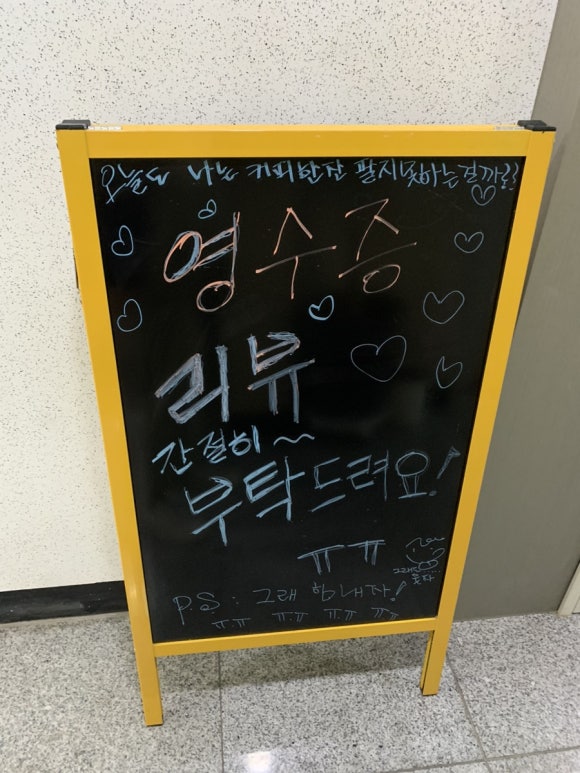 오늘도 나는 커피한잔 팔지못하는걸까??
영수증
리뷰
간절히~
부탁드려요!
ㅠㅠ
P.S : 그래 힘내자!
ㅠㅠ ㅠㅠ ㅠㅠ ㅠㅠ